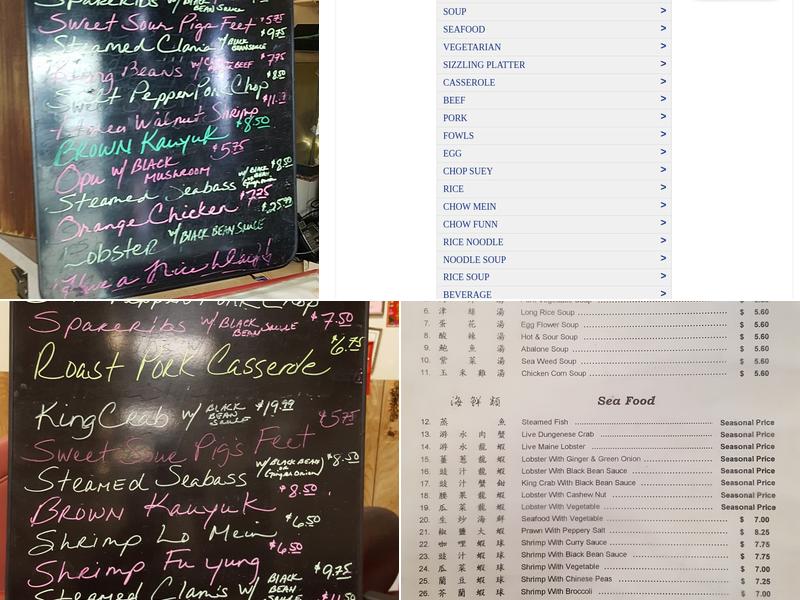 Spareribs w/ BLACK BEAN Sauce
Sweet Sour Pigs Feet $5.75
Steamed Clams w/ BLACK BEAN SAUCE $9.75
Beans w/ BEEF $7.75
Salt Pepper Pork Chop $8.50
Honey Walnut Shrimp
BROWN Kauyuk $8.50
Opu w/ BLACK MUSHROOM $5.75
Steamed Seabass w/ BLACK BEAN $8.50
Orange Chicken $7.25
Lobster w/ BLACK BEAN SAUCE $25.99
Have a Nice Day!
SOUP >
SEAFOOD >
VEGETARIAN >
SIZZLING PLATTER >
CASSEROLE >
BEEF >
PORK >
FOWLS >
EGG >
CHOP SUEY >
RICE >
CHOW MEIN >
CHOW FUNN >
RICE NOODLE >
NOODLE SOUP >
RICE SOUP >
BEVERAGE >
Pepper PORK Chop
Spareribs w/ BLACK BEAN SAUCE $7.50
Roast Pork Casserole $6.75
King Crab w/ BLACK BEAN SAUCE $19.99
Sweet Sour Pig's Feet $5.75
Steamed Seabass w/ BLACK BEAN or Ginger Onion $8.50
BROWN Kauyuk $8.50
Shrimp Lo Mein $6.50
Shrimp Fu Yung $6.50
Steamed Clams w/ BLACK BEAN SAUCE $9.75
$11.50
6. 津 絲 湯 Long Rice Soup $ 5.60
7. 蛋 花 湯 Egg Flower Soup $ 5.60
8. 酸 辣 湯 Hot & Sour Soup $ 5.60
9. 鮑 魚 湯 Abalone Soup $ 5.60
10. 紫 菜 湯 Sea Weed Soup $ 5.60
11. 玉 米 雞 湯 Chicken Corn Soup $ 5.60
海鮮類 Sea Food
12. 蒸 魚 Steamed Fish Seasonal Price
13. 游 水 肉 蟹 Live Dungenese Crab Seasonal Price
14. 游 水 龍 蝦 Live Maine Lobster Seasonal Price
15. 薑 蔥 龍 蝦 Lobster With Ginger & Green Onion Seasonal Price
16. 豉 汁 龍 蝦 Lobster With Black Bean Sauce Seasonal Price
17. 豉 汁 蟹 King Crab With Black Bean Sauce Seasonal Price
18. 腰 果 龍 蝦 Lobster With Cashew Nut Seasonal Price
19. 瓜 菜 龍 蝦 Lobster With Vegetable Seasonal Price
20. 生 炒 海 鮮 Seafood With Vegetable $ 7.00
21. 椒 鹽 大 蝦 Prawn With Peppery Salt $ 8.25
22. 咖 哩 蝦 球 Shrimp With Curry Sauce $ 7.75
23. 豉 汁 蝦 球 Shrimp With Black Bean Sauce $ 7.75
24. 瓜 菜 蝦 球 Shrimp With Vegetable $ 7.00
25. 蘭 豆 蝦 球 Shrimp With Chinese Peas $ 7.25
26. 芥 蘭 蝦 球 Shrimp With Broccoli $ 7.00